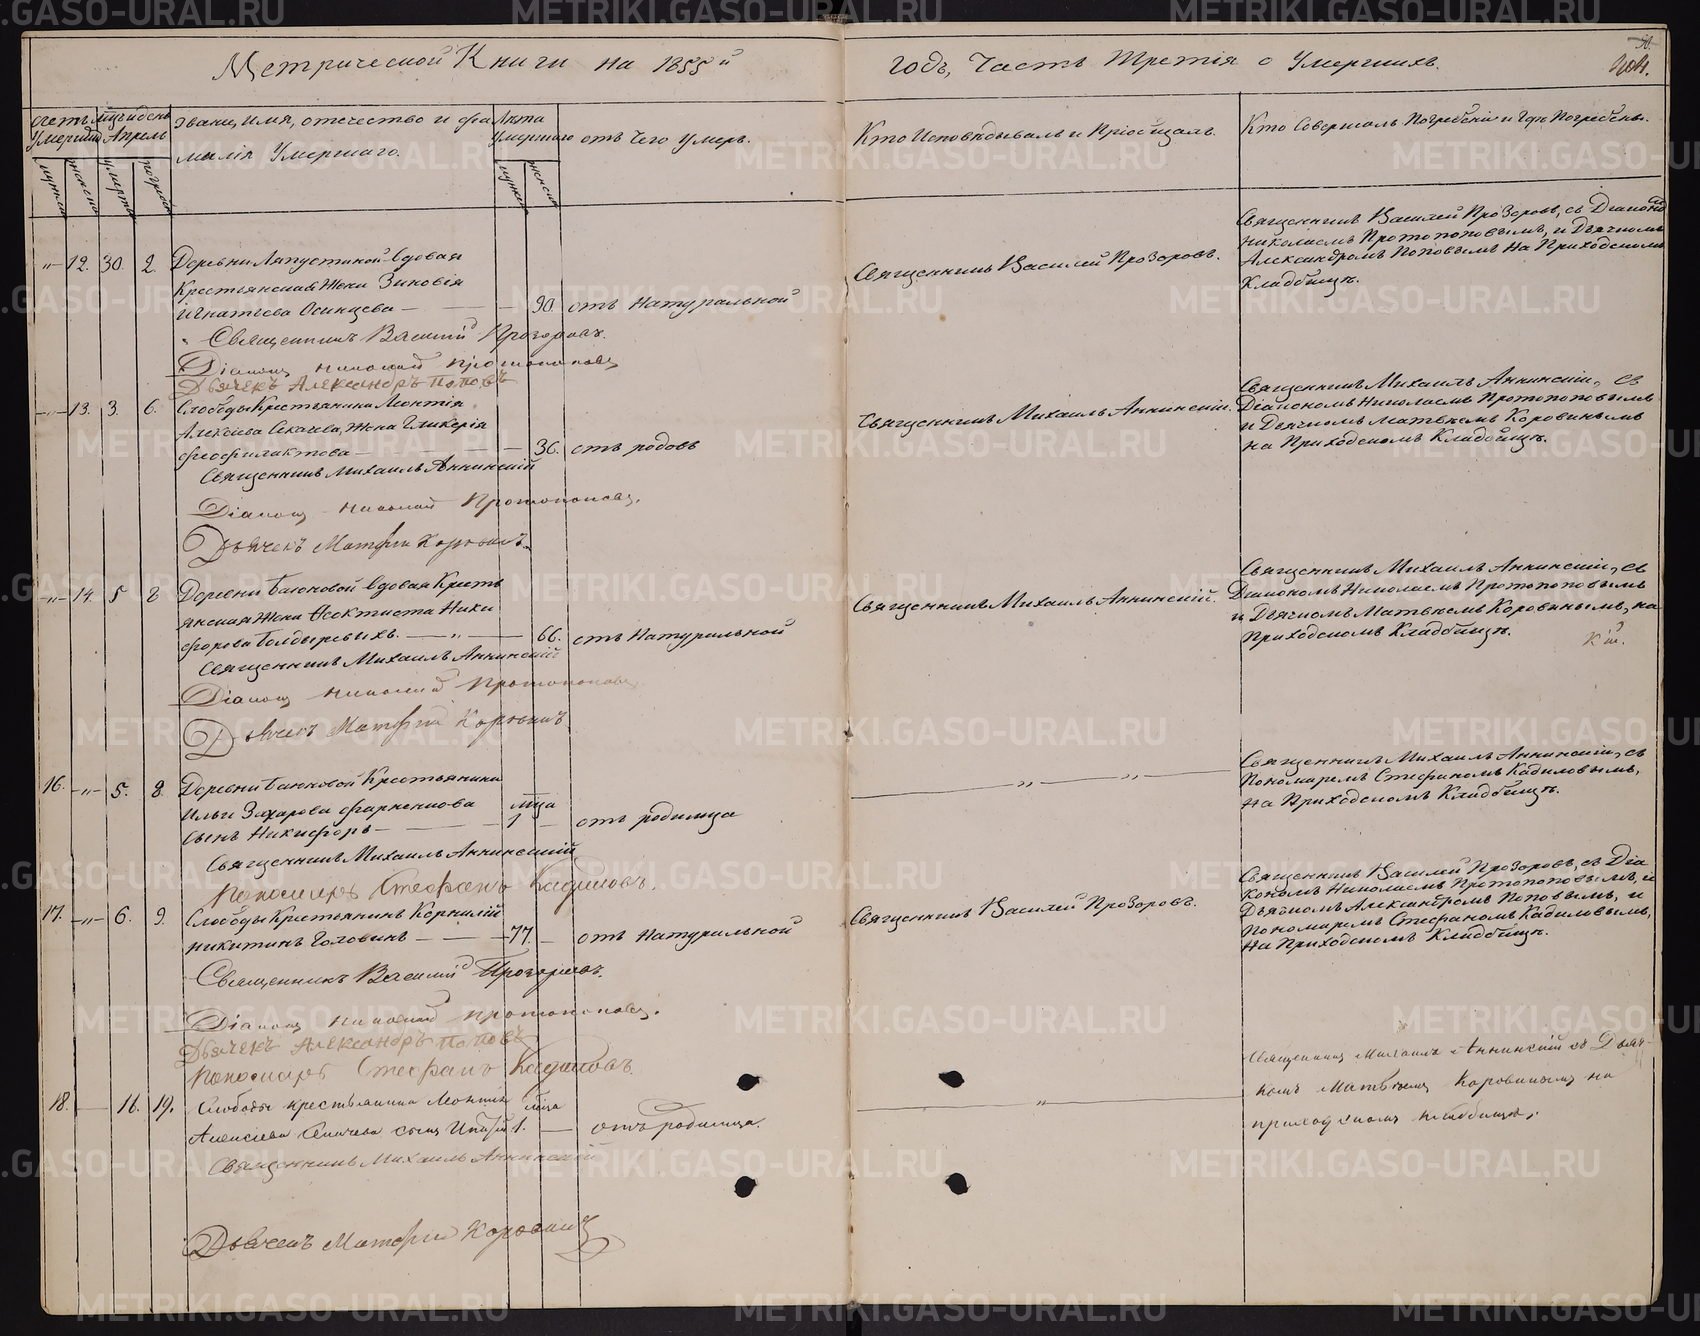 Метрической Книги на 1855й
годъ, Часть Третія о Умершихъ.
Счетъ Умершихъ
Мц҃ъ и день
Апрель
Званіе, Имя, отечество и фамилія Умершаго.
Лѣта Умершаго
отъ Чего умеръ.
Кто Исповѣдывалъ и Пріобщалъ.
Кто Совершалъ Погребеніе и Где Погребены.
12. 30. 2. Деревни Ляпустиной вдовая
Крестьянская Жена Зиновія
Игнатьева Осинцева — 90. отъ Натуральной
Священникъ Василей Прозоровъ.
Священникъ Василей Прозоровъ, съ Діакономъ
Николаемъ Протопоповымъ, и Дьячкомъ
Александромъ Поповымъ на Приходскомъ
Кладбищѣ.
Священникъ Василій Прозоровъ.
Діаконъ Николай Протопоповъ
Дьячекъ Александръ Поповъ
13. 3. 6. Слободы Крестьянина Леонтія
Алексѣева Секачева, Жена Гликерія
Феофилактова — 36. отъ родовъ
Священникъ Михаилъ Аннинскій.
Священникъ Михаилъ Аннинскій, съ
Діакономъ Николаемъ Протопоповымъ
и Дьячкомъ Матвѣемъ Коровинымъ
на Приходскомъ Кладбищѣ.
Священникъ Михаилъ Аннинскій
Діаконъ Николай Протопоповъ.
Дьячекъ Матфій Коровинъ.
14. 5 8 Деревни Баюновой вдовая Кресть
янская Жена Феоктиста Ники
форова Болдыревыхъ. — 66. отъ Натуральной
Священникъ Михаилъ Аннинскій.
Священникъ Михаилъ Аннинскій, съ
Діакономъ Николаемъ Протопоповымъ
и Дьячкомъ Матвѣемъ Коровинымъ, на
Приходскомъ Кладбищѣ.
Священникъ Михаилъ Аннинскій
Діаконъ Николай Протопоповъ
Дьячекъ Матфій Коровинъ
16. 5. 8. Деревни Баюновой Крестьянина
Ильи Захарова Фарненкова
Сынъ Никифоръ — мц҃а 1 — отъ родимца
Священникъ Михаилъ Аннинскій, съ
Пономаремъ Стефаномъ Кадиловымъ,
на Приходскомъ Кладбищѣ.
Священникъ Михаилъ Аннинскій
Пономарь Стефанъ Кадиловъ.
17. 6. 9. Слободы Крестьянинъ Корнилій
Никитинъ Головинъ — 77. — отъ Натуральной
Священникъ Василей Прозоровъ.
Священникъ Василей Прозоровъ, съ Діа
кономъ Николаемъ Протопоповымъ, и
Дьячкомъ Александромъ Поповымъ, и
Пономаремъ Стефаномъ Кадиловымъ,
на Приходскомъ Кладбищѣ.
Священникъ Василій Прозоровъ.
Діаконъ Николай Протопоповъ.
Дьячекъ Александръ Поповъ
Пономарь Стефанъ Кадиловъ.
18. — 16. 19. Слободы крестьянина Леонтія
Алексѣева сынъ мц҃а 1. — отъ родимца.
Священникъ Михаилъ Аннинскій съ Дьяч-
комъ Матвѣемъ Коровинымъ на
приходскомъ кладбищѣ.
Священникъ Михаилъ Аннинскій
Дьячекъ Матфій Коровинъ
METRIKI.GASO-URAL.RU